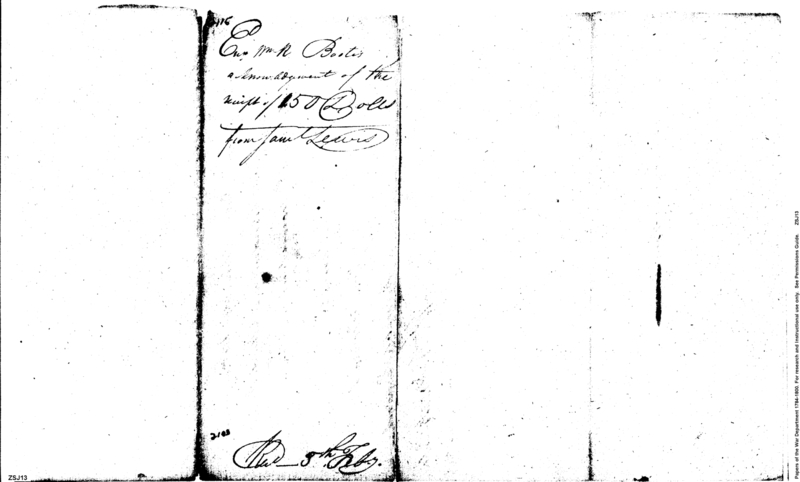 Ens. Wm. R. Bootes
acknowledgment of the
receipt of 150 Dolls
from Saml Lewis
Recd 5th Feby.
ZSJ13
Papers of the War Department 1784-1800. For research and instructional use only. See Permissions Guide. ZSJ13